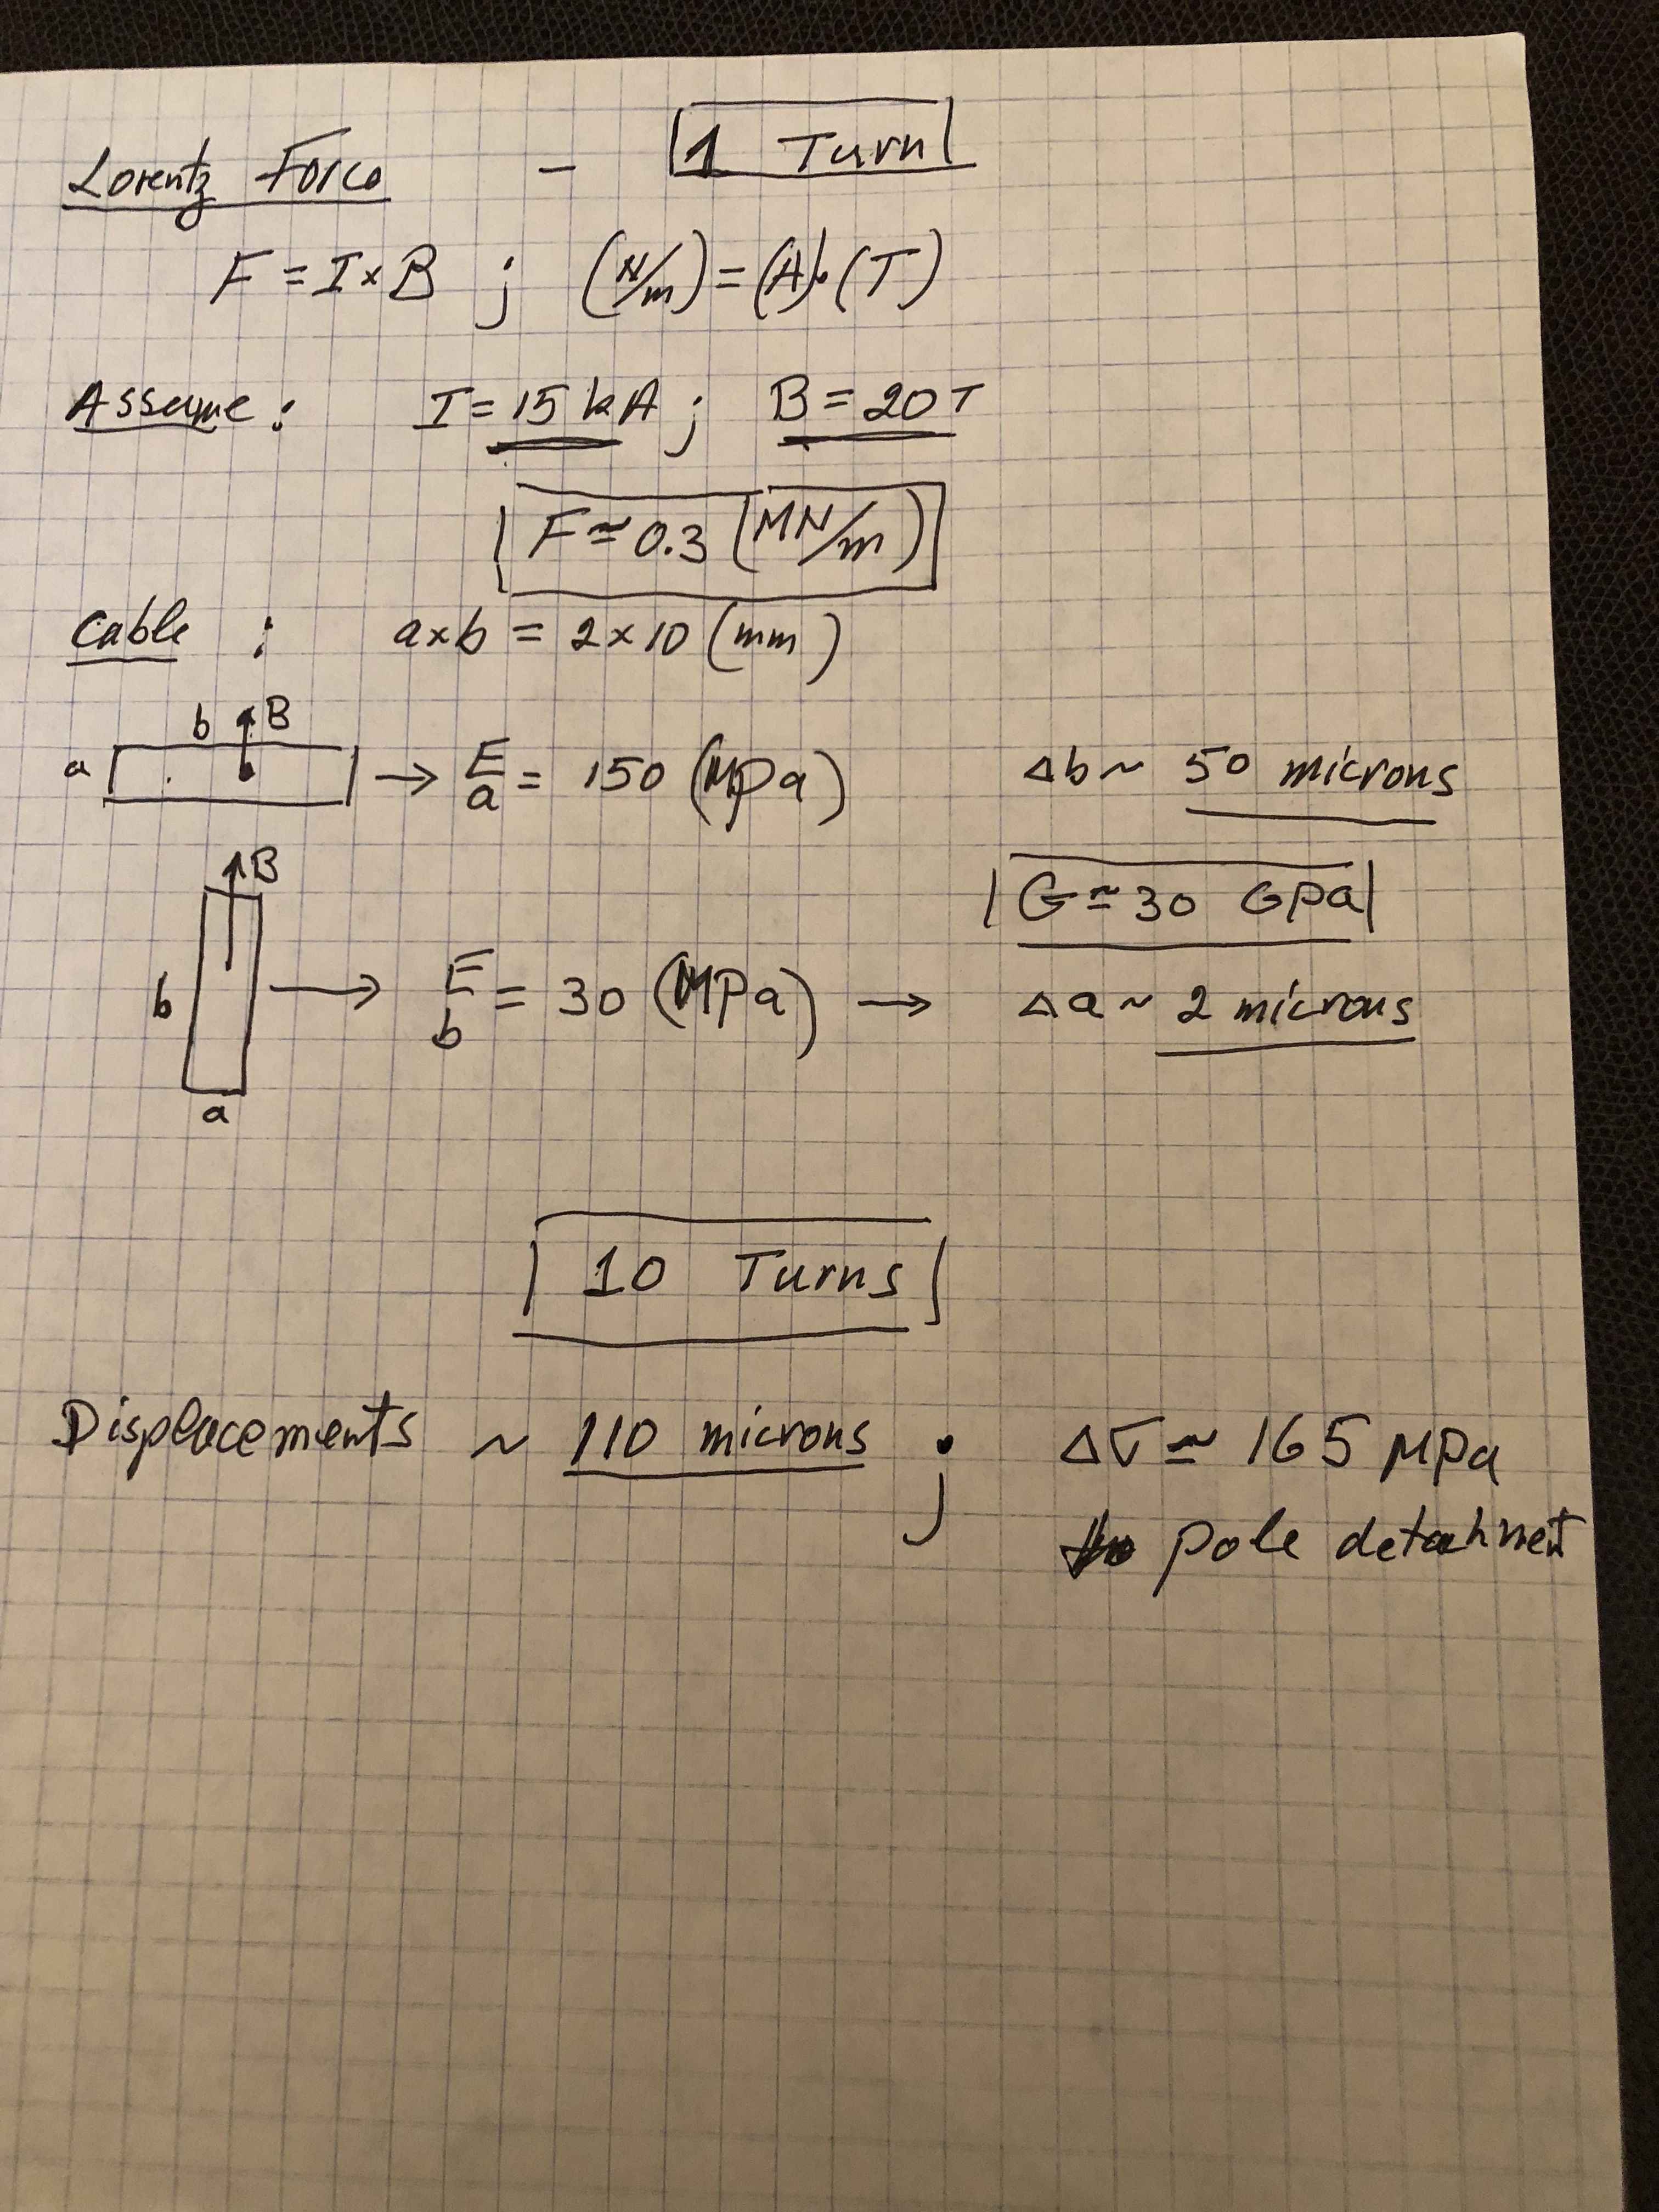 Lorentz Force - 1 Turn
F = I × B ; (N/m) = (A) · (T)
Assume : I = 15 kA ; B = 20 T
F ≃ 0.3 (MN/m)
Cable : a×b = 2×10 (mm)
b B
a → F/a = 150 (MPa) Δb ~ 50 microns
B
G ≃ 30 GPa
b → F/b = 30 (MPa) → Δa ~ 2 microns
a
10 Turns
Displacements ~ 110 microns ; Δσ ≃ 165 MPa
pole detachnet